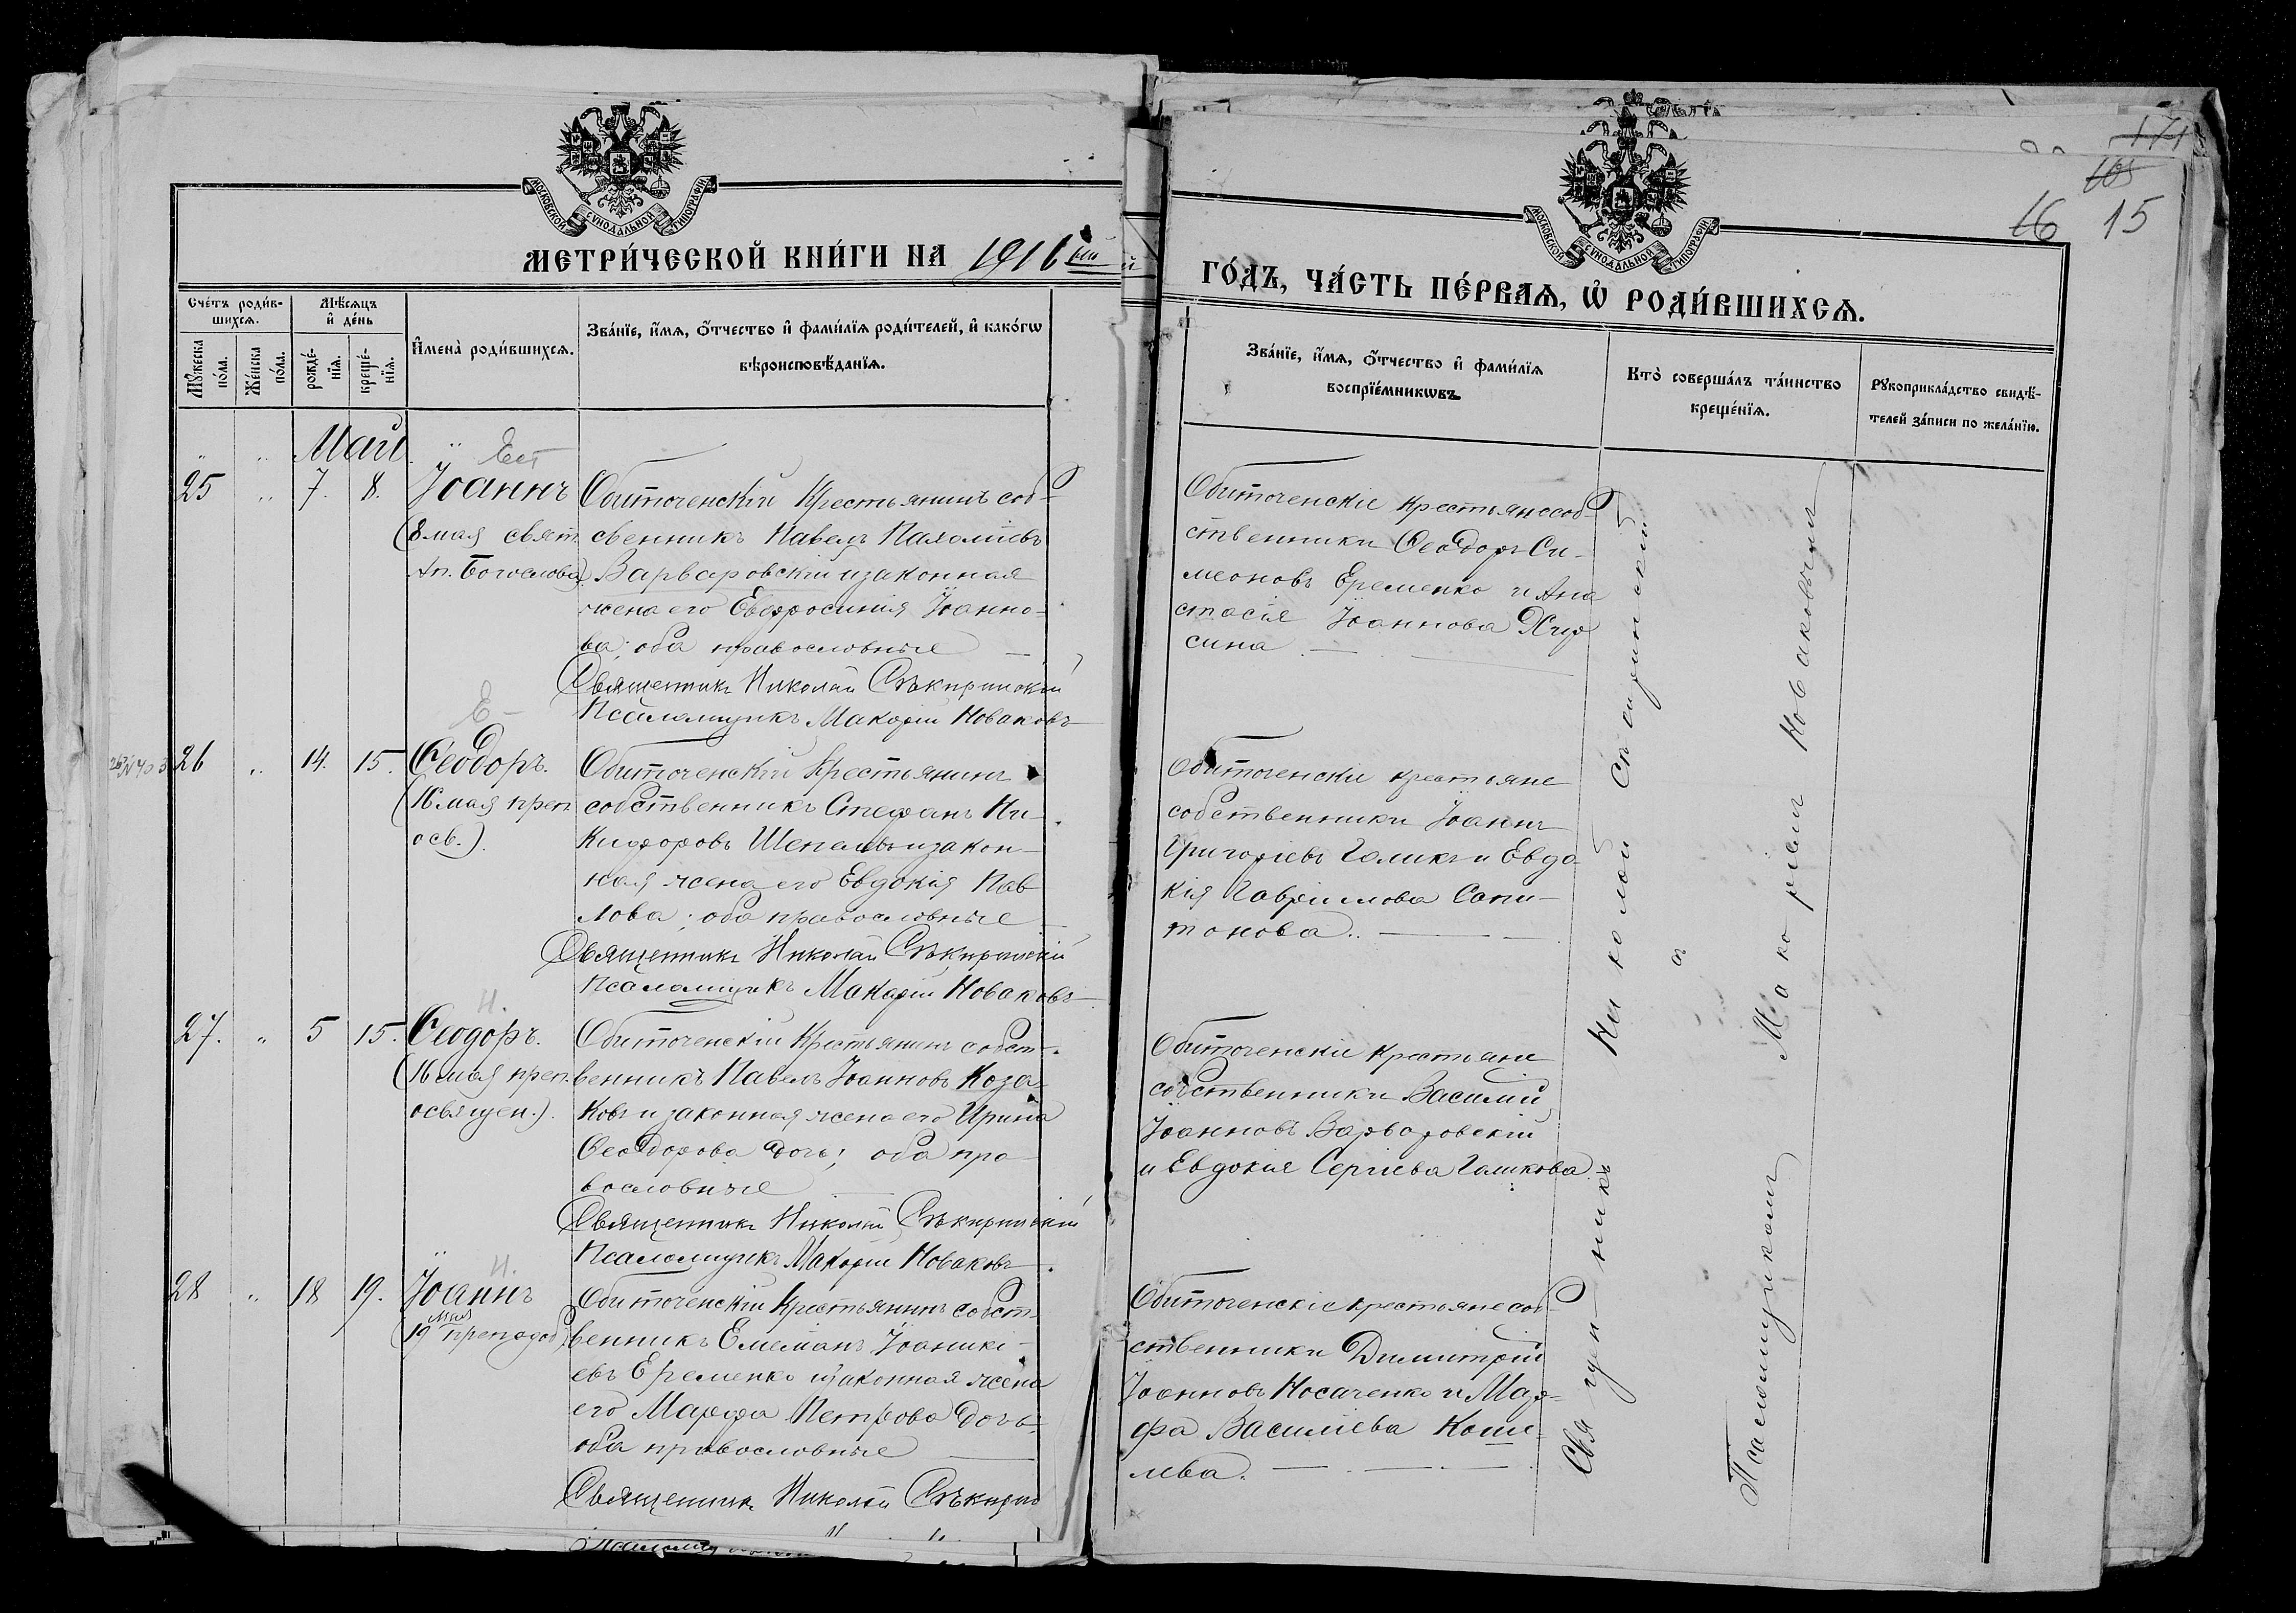 174
105
16 15
МОСКОВСКОЙ СѴНОДАЛЬНОЙ ТИПОГРАФІИ
МОСКОВСКОЙ СѴНОДАЛЬНОЙ ТИПОГРАФІИ
МЕТРИ́ЧЕСКОЙ КНИ́ГИ НА 1916ый
ГО́ДЪ, ЧА́СТЬ ПЕ́РВАѦ, Ѡ҆ РОДИ́ВШИХСѦ.
Сче́тъ роди́в-
шихсѧ.
Мѣ́сѧцъ
и҆ де́нь
Мꙋ́жеска
по́ла.
Же́нска
по́ла.
рожде́-
нїѧ.
креще́-
нїѧ.
И҆мена̀ роди́вшихсѧ.
Зва́нїе, и҆́мѧ, ѻ҆́тчество и҆ фами́лїѧ роди́телей, и҆ како́гѡ
вѣроисповѣ́данїѧ.
Зва́нїе, и҆́мѧ, ѻ҆́тчество и҆ фами́лїѧ
воспрїе́мникѡвъ.
Кто̀ соверша́лъ та́инство
креще́нїѧ.
Рꙋкоприкла́дство свидѣ́-
телей за́писи по жела́нїю.
Май
25 " 7. 8. Іоаннъ
(8 мая свят.
Ап. Богослова)
Обиточенскій Крестьянинъ соб-
свенникъ Павелъ Пахоміевъ
Варваровскій и законная
жена его Евфросинія Іоанно-
ва; оба православные
Священникъ Николай Сѣкиринскій
Псаломщикъ Макарій Новаковъ
Обиточенскіе крестьяне соб-
ственники Ѳеодоръ Си-
меоновъ Еременко и Ана
стасія Іоаннова
сина
26 " 14. 15. Ѳеодоръ.
(16 мая преп
осв.).
Обиточенскій Крестьянинъ
собственникъ Стефанъ Ни-
кифоровъ Шепель и закон-
ная жена его Евдокія Пав-
лова; оба православные
Священникъ Николай Сѣкиринскій
Псаломщикъ Макарій Новаковъ
Обиточенскіе крестьяне
собственники Іоаннъ
Григоріевъ Голикъ и Евдо-
кія Гавріилова Сапи-
тонова.
27. " 5 15. Ѳеодоръ.
(16 мая преп.
освящен.).
Обиточенскій Крестьянинъ собст-
венникъ Павелъ Іоанновъ Коза-
ковъ и законная жена его Ирина
Ѳеодорова дочь; оба пра-
вославные
Священникъ Николай Сѣкиринскій
Псаломщикъ Макарій Новаковъ
Обиточенскіе крестьяне
собственники Василій
Іоанновъ Варваровскій
и Евдокія Сергіева Голикова.
28 " 18 19. Іоаннъ
(19 мая преподоб.)
Обиточенскій Крестьянинъ собст-
венникъ Емеліанъ Іоанникі-
евъ Еременко и законная жена
его Марфа Петрова дочь
оба православные
Священникъ Николай Сѣкирин
Обиточенскіе крестьяне соб-
ственники Димитрій
Іоанновъ Носаченко и Мар-
фа Василіева Коше-
лева.
Священникъ Николай Сѣкиринскій
съ
Псаломщикомъ Макаріемъ Новаковымъ